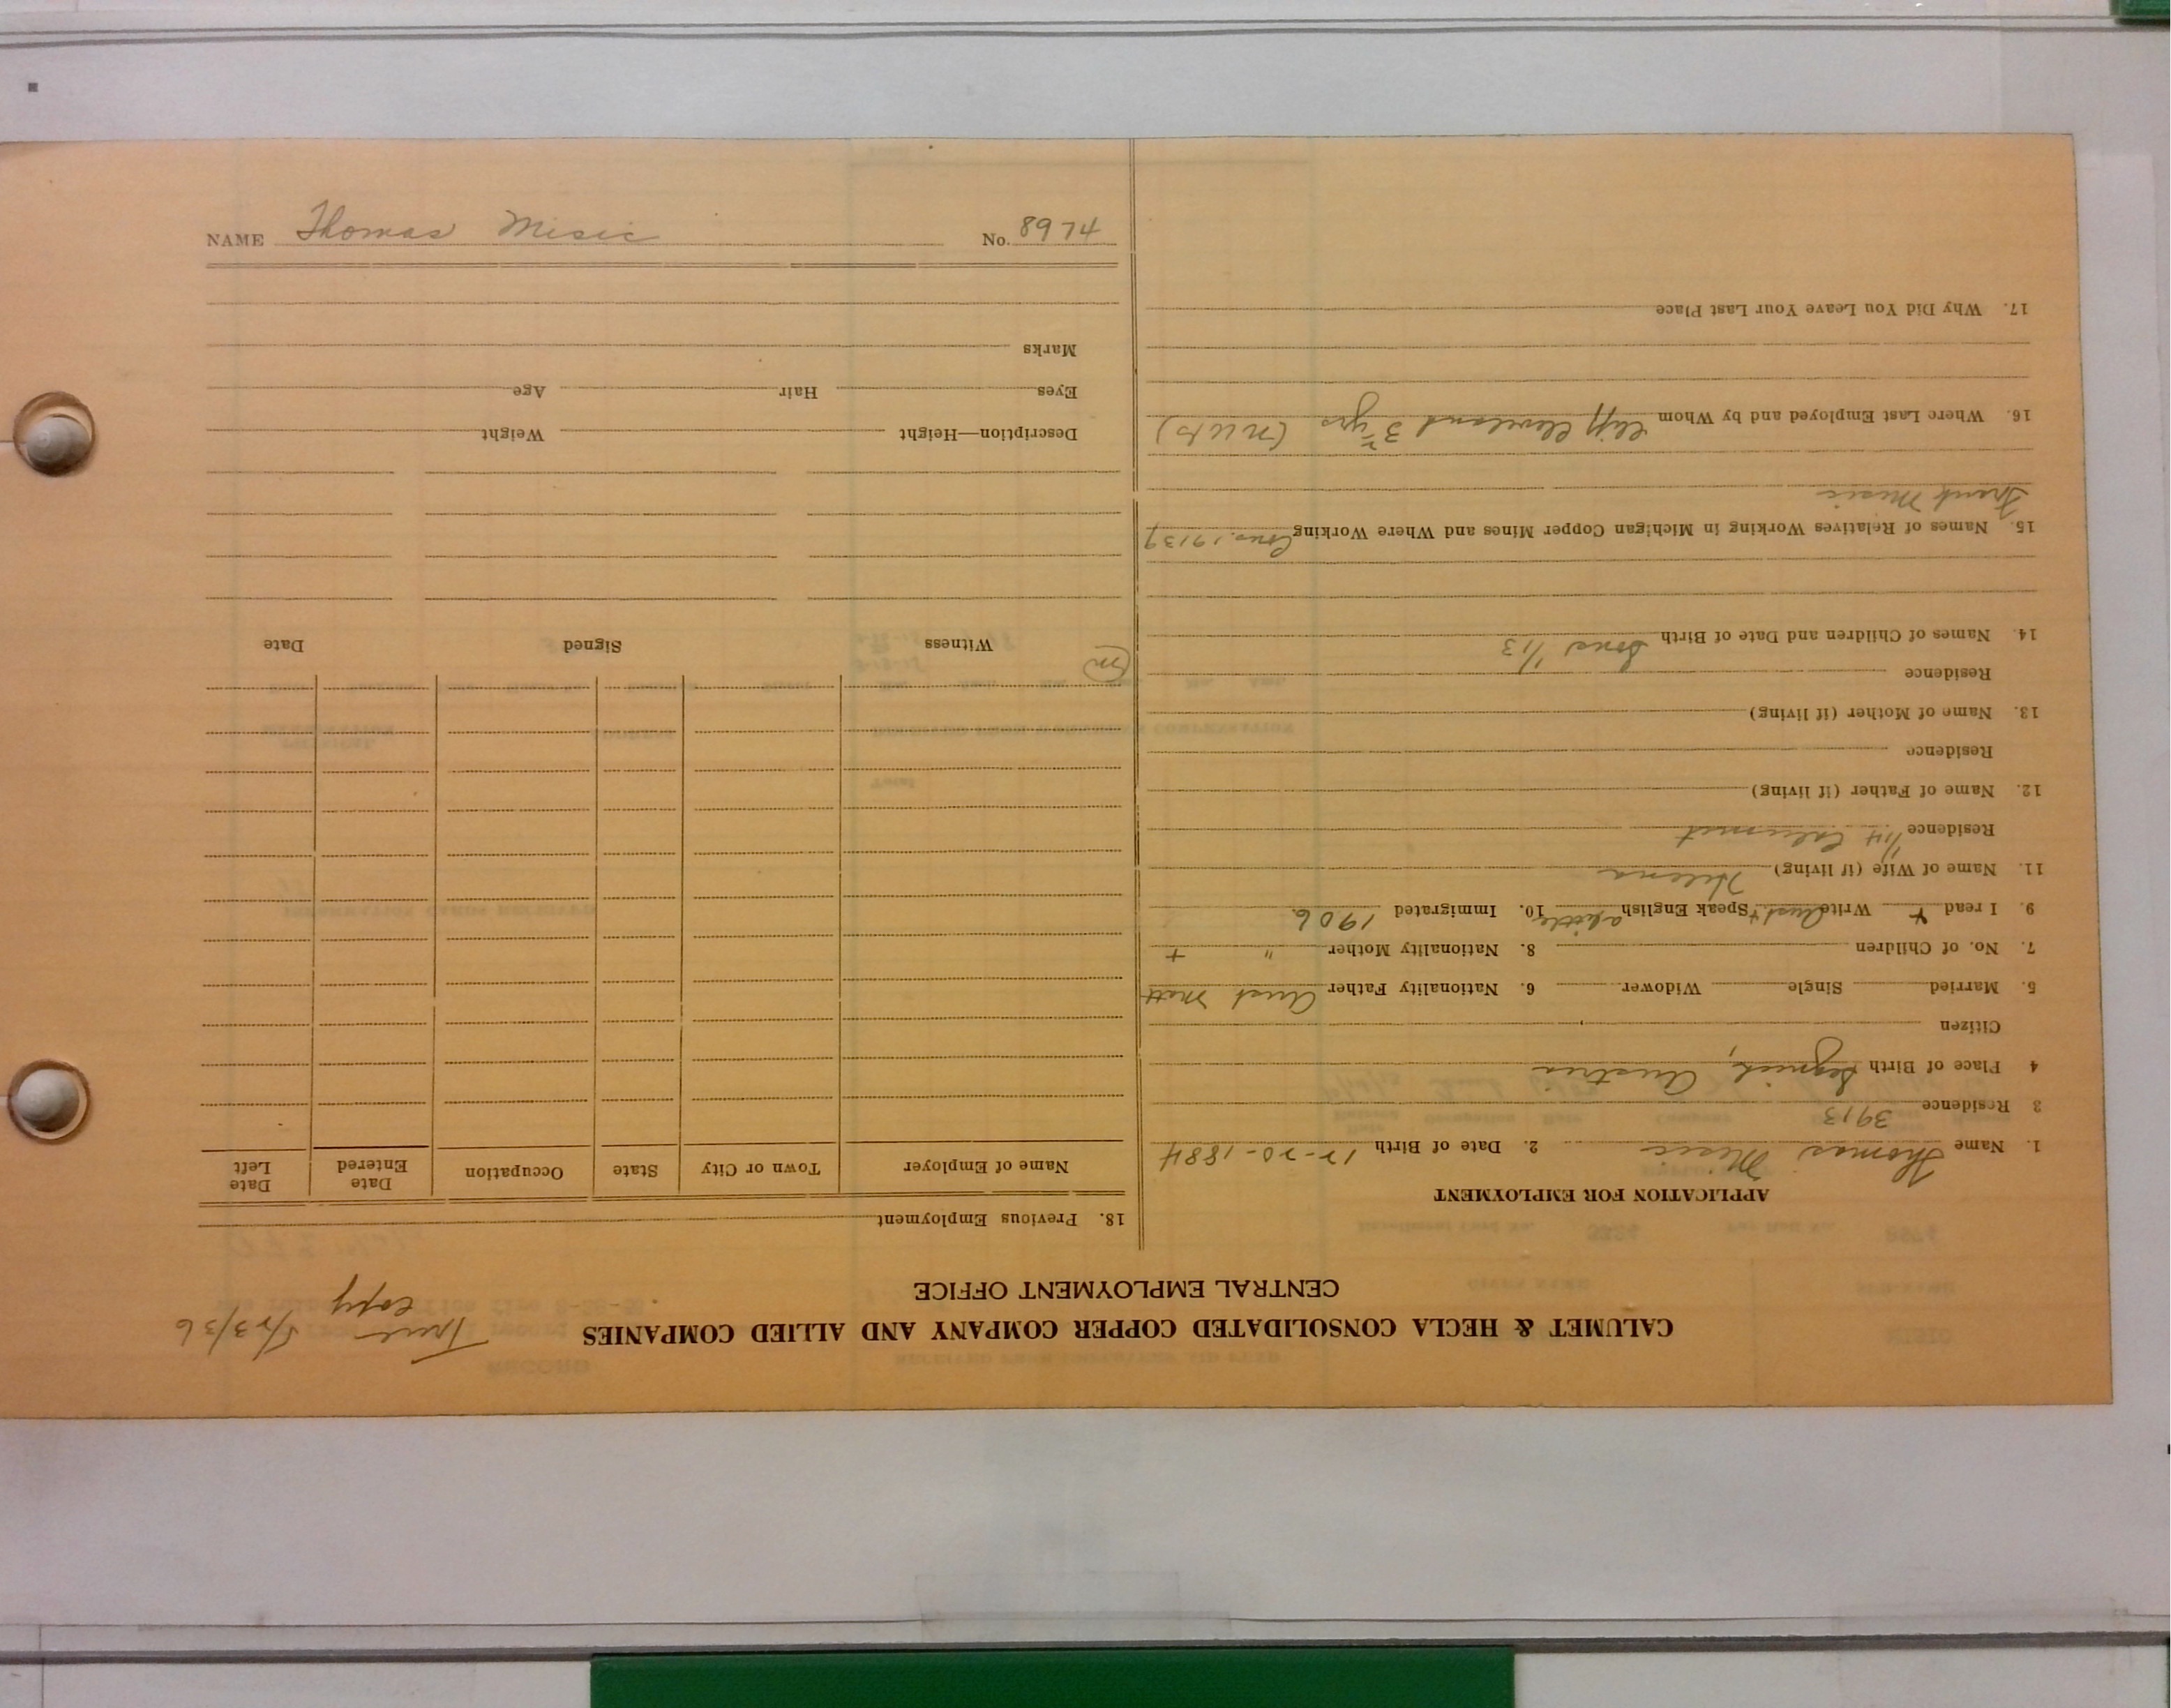 NAME Thomas Misic No. 8974
CALUMET & HECLA CONSOLIDATED COPPER COMPANY AND ALLIED COMPANIES
CENTRAL EMPLOYMENT OFFICE
True copy 5/23/36
APPLICATION FOR EMPLOYMENT
1. Name Thomas Misic 2. Date of Birth 12-20-1884
3 Residence 3913
4 Place of Birth Austria
Citizen
5. Married Single Widower 6. Nationality Father Aust Matt
7. No. of Children 8. Nationality Mother " +
9. I read + Write Aust + Speak English a little 10. Immigrated 1906
11. Name of Wife (if living) Helena
Residence 1/14 Calumet
12. Name of Father (if living)
Residence
13. Name of Mother (if living)
Residence
14. Names of Children and Date of Birth 1/13
15. Names of Relatives Working in Michigan Copper Mines and Where Working Cons. 19139
Frank Misic
16. Where Last Employed and by Whom Cliff Cleveland 3 yrs
17. Why Did You Leave Your Last Place
18. Previous Employment
Name of Employer Town or City State Occupation Date Entered Date Left
(m)
Witness Signed Date
Description—Height Weight
Eyes Hair Age
Marks